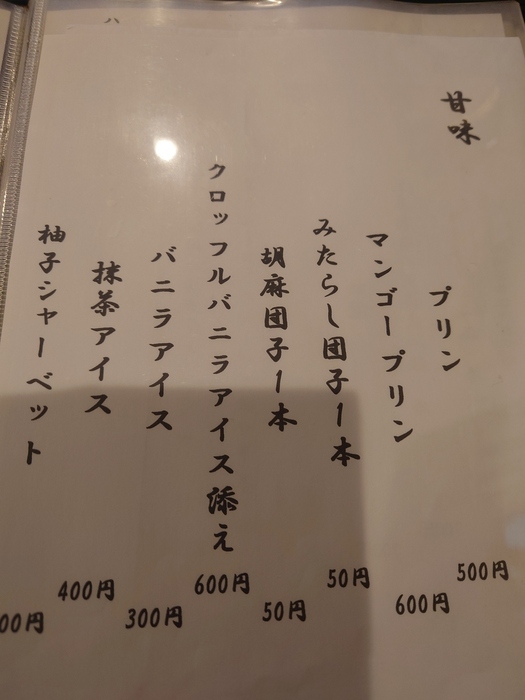 甘味
プリン
500円
マンゴープリン
600円
みたらし団子1本
50円
胡麻団子1本
50円
クロッフルバニラアイス添え
600円
バニラアイス
300円
抹茶アイス
400円
柚子シャーベット
00円